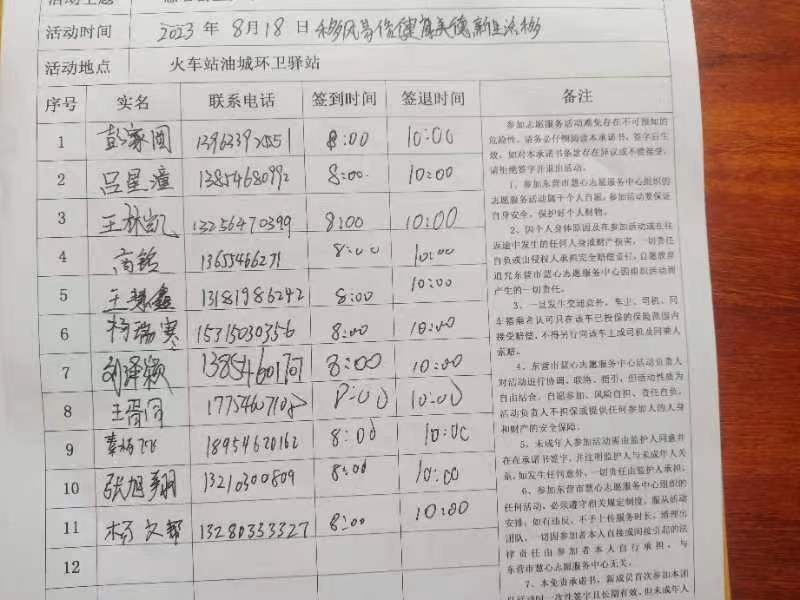 活动主题
活动时间 2023年8月18日 移风易俗健康美德新生活移
活动地点 火车站油城环卫驿站
序号 实名 联系电话 签到时间 签退时间 备注
1 8:00 10:00
2 吕星潼 13854680992 8:00 10:00
3 王林凯 13256470399 8:00 10:00
4 高铭 13655466271 8:00 10:00
5 王慧鑫 13181986242 8:00 10:00
6 杨瑞寒 15315030356 8:00 10:00
7 刘泽颖 8:00 10:00
8 王晋同 8:00 10:00
9 18954620162 8:00 10:00
10 张旭翔 13210300809 8:00 10:00
11 杨文静 13280333327 8:00 10:00
12
参加志愿服务活动难免存在不可预知的
危险性，请务必仔细阅读本承诺书，签字后生
效。如对本承诺书条款存在异议或不能接受，
请拒绝签字并退出活动。
1、参加东营市慧心志愿服务中心组织的
志愿服务活动属于个人自愿，参加活动要保证
自身安全，保护好个人财物。
2、因个人身体原因及在参加活动或在往
返途中发生的任何人身或财产损害，一切责任
自负或由侵权人承担完全赔偿责任，自愿放弃
追究东营市慧心志愿服务中心因组织活动而
产生的一切责任。
3、一旦发生交通意外，车主、司机、同车
搭乘者认可只在该车已投保的保险范围内
接受赔偿，不得另行向该车主或司机及同乘人
索赔。
4、东营市慧心志愿服务中心活动负责人
对活动进行协调、联络、指引，但活动性质为
自由结合、自愿参加、风险自担、责任自负，
活动负责人不担保或提供任何参加人的人身
和财产的安全保障。
5、未成年人参加活动需由监护人同意并
在在承诺书签字，并注明监护人与未成年人关
系，如发生任何意外，一切责任由监护人承担；
6、参加东营市慧心志愿服务中心组织的
任何活动，必须遵守相关规定制度，服从活动
安排，如有违反，不予上传服务时长，清理出
团队，一切因参加者本人直接或间接引起的法
律责任由参加者本人自行承担，与
东营市慧心志愿服务中心无关。
7、本免责承诺书，新成员首次参加本团